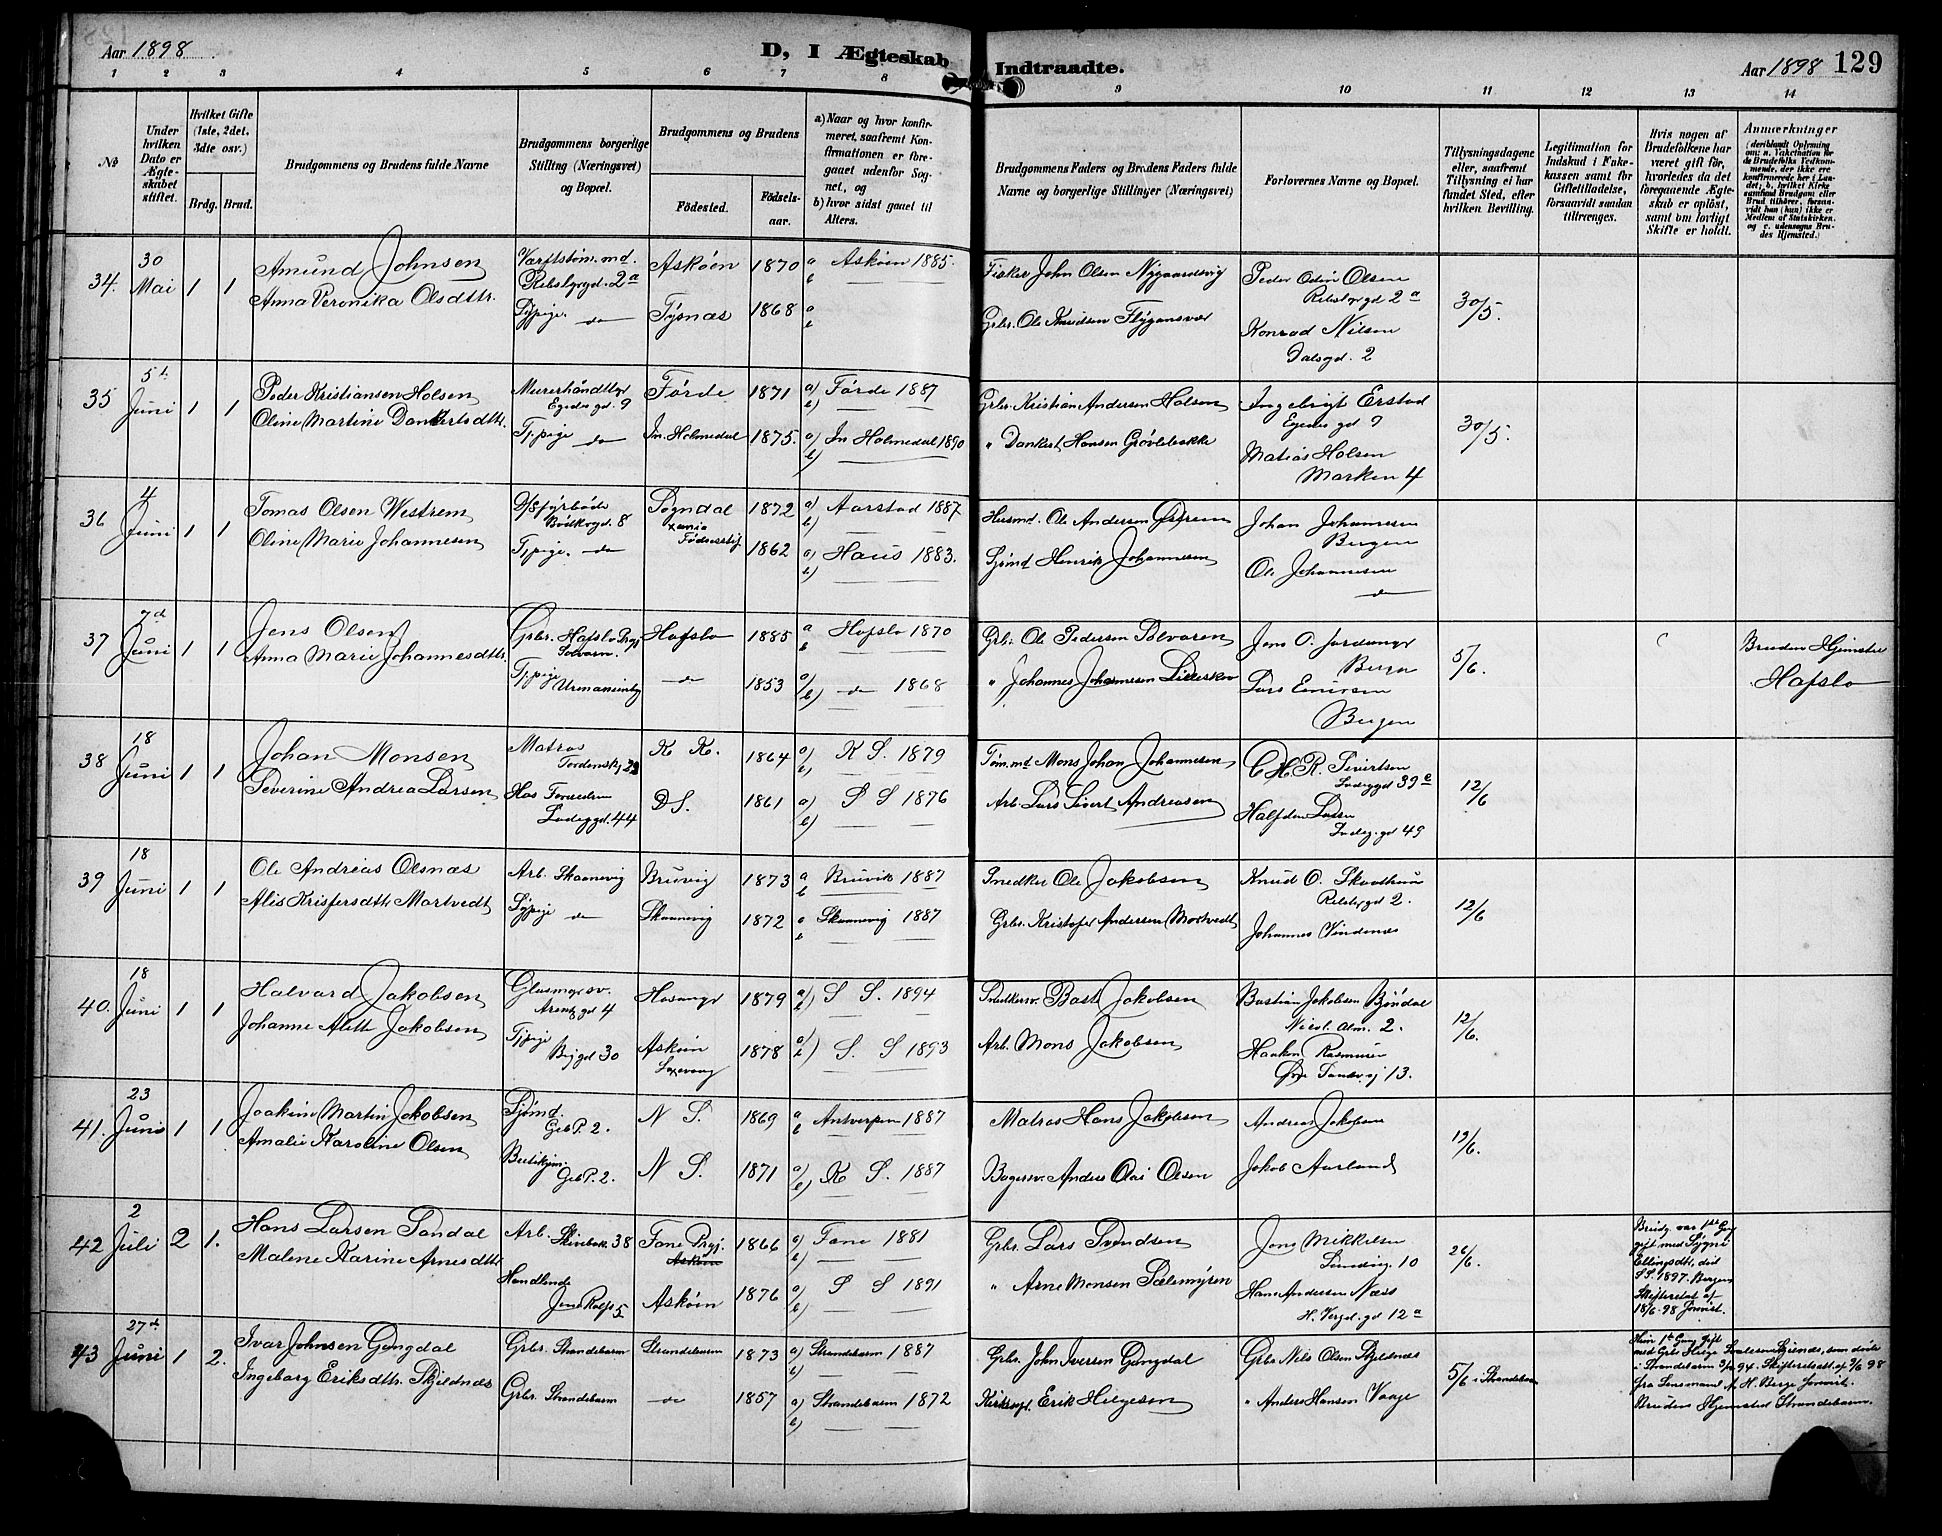 Aar 1898
D, I Ægteskab Indtraadte.
Aar 1898 129
1 2 3 4 5 6 7 8 9 10 11 12 13 14
No
Under hvilken Dato er Ægteskabet stiftet.
Hvilket Gifte (1ste, 2det, 3die osv.)
Brdg. Brud.
Brudgommens og Brudens fulde Navne
Brudgommens borgerlige Stilling (Næringsvei) og Bopæl.
Brudgommens og Brudens
Fødested.
Fødselsaar.
a) Naar og hvor konfirmeret, saafremt Konfirmationen er foregaaet udenfor Sognet, og
b) hvor sidst gaaet til Alters.
Brudgommens Faders og Brudens Faders fulde Navne og borgerlige Stillinger (Næringsvei)
Forlovernes Navne og Bopæl.
Tillysningsdagene eller, saafremt Tillysning ei har fundet Sted, efter hvilken Bevilling.
Legitimation for Indskud i Fakekassen samt for Giftetilladelse, forsaavidt saadan tiltrænges.
Hvis nogen af Brudefolkene har været gift før, hvorledes da det foregaaende Ægteskab er opløst, samt om lovligt Skifte er holdt.
Anmerkninger
34. 30 Mai 1 1
Amund Johnsen
Anna Veronika Olsdttr.
Rebslgrgd. 2a
Sypige. do
Askøen 1870 a Askøen 1885.
b
Tysnæs 1868 a
b
Fisker John Olsen Nygaardsvig
Grbr. Ole Knudsen Flygansvær
Peder Odin Olsen
Rebslgrgd 2a
Konrad Nilsen
Dalsgd. 2
30/5.
35 5t. Juni 1 1
Peder Kristiansen Holsen
Oline Martine Dankertsdttr.
Egedes gd. 9
Tjpige do
Førde 1871 a) Førde 1887
b)
In. Holmedal 1875. a) In Holmedal 1890
b)
Grbr. Kristian Andersen Holsen
" Dankert Hansen Grøvlebakke
Ingebrigt Erstad
Egedes gd 9
Matias Holsen
Marken 4
30/5.
36 4 Juni 1 1
Tomas Olsen Westrem
Oline Marie Johannesen
D/S fyrbøder
Bødkergd. 8
Tjpige. do
Sogndal 1872 a) Aarstad 1887.
b)
1862 a) Haus 1883.
b)
Husmd. Ole Andersen Østrem
Sjømd Henrik Johannesen
Johan Johannesen
Bergen
Ole Johannesen
do
37 7d Juni 1 1
Jens Olsen
Anna Marie Johannesdttr.
Grbr. Hafslo Prgj
Solvorn.
Tjpige
Hafslo 1885 a Hafslo 1870
b
do 1853 a) do 1868
b)
Grbr. Ole Pedersen Solvoren
" Johannes Johannesen Lilleskov
Jens O.
Bergen
Lars
Bergen
5/6.
Bruden Hjemsted
Hafslo
38 18 Juni 1 1
Johan Monsen
Severine Andrea Larsen
Matros
Tordenskj 23
Hos Forældrene
Ladeggd. 44
K K. 1864 a) K S. 1879
b)
D S. 1861 a) S S 1876
b)
Tøm.md Mons Johan Johannesen
Arb. Lars Sivert Andreasen
C H. R. Sivertsen
Ladeggd 39e
Halfdan Larsen
Ladeg.gd 49
12/6
39 18 Juni 1 1
Ole Andreas Olsnæs
Alis Krisfersdttr Mortvedt
Arb. Skaanevig
Sypige do
Bruvig 1873 a Bruvik 1887
b
Skaanevig 1872 a Skaanevig 1887
b
Snedker Ole Jakobsen
Grbr. Kristofer Andersen Mortvedt
Knud O.
Rebslgrgd 2.
Johannes Vindenæs
12/6
40. 18 Juni 1 1
Halvard Jakobsen
Johanne Alette Jakobsen
Glasmgrsv.
Arentz gd 4
Tjpige
Bøgd 30
Hosanger 1879 a) S S. 1894
b
Askøen 1878 a) S. S 1893
b
Snedkersv. Bast Jakobsen
Arb. Mons Jakobsen
Bastian Jakobsen Bjøndal
Nicol. alm. 2.
Haakon Rasmusen
13.
12/6.
41. 23 Juni 1 1
Joakim Martin Jakobsen
Amalie Karoline Olsen
Sjømd.
Geb P. 2.
Butikjom.
Geb P. 2.
N S. 1869 a Antverpen 1887
b
N S. 1871 a) K S. 1887
b)
Matros Hans Jakobsen
Bagersv. Anders Olai Olsen
Andreas Jakobsen
Jakob Aarland
19/6.
42 2 Juli 2 1.
Hans Larsen Sandal
Malene Karine Arnesdttr
Arb. Skivebak. 38
Handlende
Jens Rolfs 5
Fane Prgj. 1866 a) Fane 1881
Askøen b)
Askøen 1876 a) S S 1891
b)
Grbr. Lars Svendsen
" Arne Monsen Sælemyren
Jens Mikkelsen
Sandvig. 10
Hans Andersen Næss
H. Vergd. gd 12a
26/6.
Brudg. var 1ste Gang
gift med Sygni
Ellingsdtr, død
S S. 1897. Bergens
Skifteretsat. af
18/6-98 forevist.
43 27de Juni 1 2.
Ivar Johnsen Gangdal
Ingeborg Eriksdttr. Skjeldnæs
Grbr. Strandebarm
Grbr. Strandebarm
Strandebarm 1873 a) Strandebarm 1887
b)
do 1857 a) Strandebarm 1872
b)
Grbr. John Iversen Gangdal
Kirkesgr. Erik Helgesen
Grbr Nils Olsen Skjeldnæs
" Anders Hansen Vaage
5/6 i Strandebarm
Hun 1ste Gang gift
fra Lensmand H. Berge forevist.
Brudens Hjemsted Strandebarm.